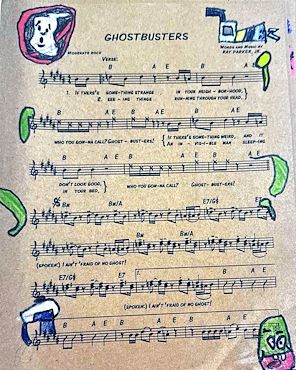 GHOSTBUSTERS
WORDS AND MUSIC BY
RAY PARKER, JR.
MODERATE ROCK
VERSE:
B A E B A E
1. IF THERE'S SOMETHING STRANGE IN YOUR NEIGH - BOR-HOOD,
2. SEE - ING THINGS RUN-NING THROUGH YOUR HEAD,
B A E B A E B
WHO YOU GON-NA CALL? GHOST - BUST-ERS! IF THERE'S SOMETHING WEIRD, AND IT
AN IN - VIS-I-BLE MAN SLEEP-ING
B A E B A E
DON'T LOOK GOOD, WHO YOU GON-NA CALL? GHOST - BUST-ERS!
IN YOUR BED,
Bm Bm/A E7/G# E7
Bm Bm/A
(SPOKEN:) I AIN'T 'FRAID OF NO GHOST!
E7/G# E7 1.
(SPOKEN:) I AIN'T 'FRAID OF NO GHOST!
B A E B A E